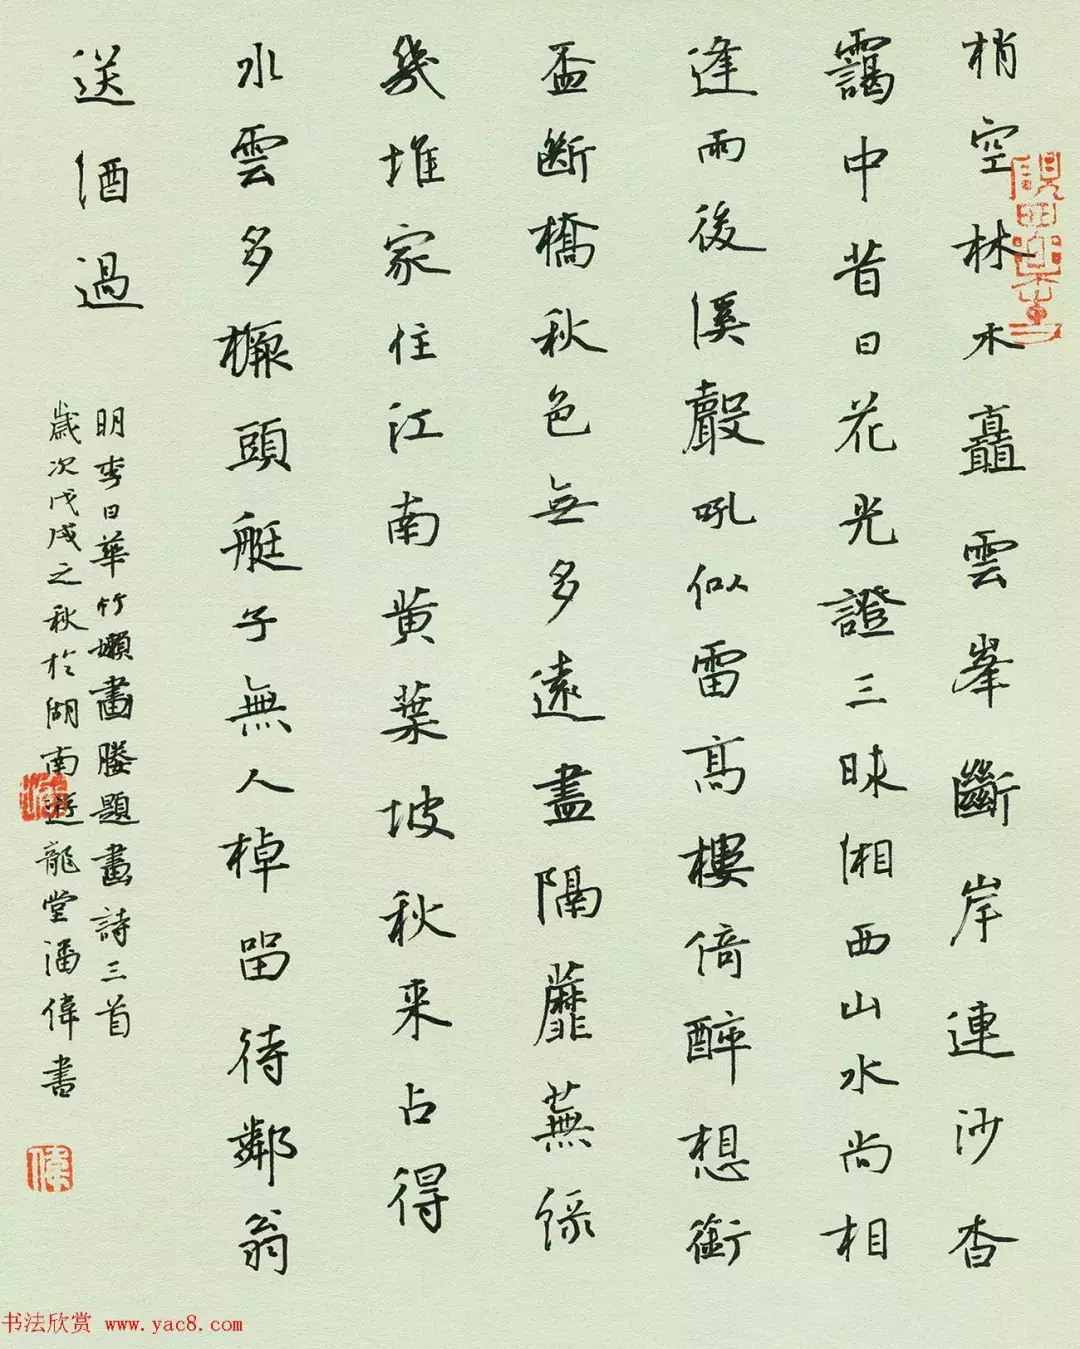 梢空林木矗雲峯斷岸連沙杳
靄中昔日花光證三昧湘西山水尚相
逢雨後溪聲吼似雷高樓倚醉想銜
盃斷橋秋色無多遠盡隔蘼蕪綠
幾堆家住江南黄葉坡秋来占得
水雲多橛頭艇子無人棹留待鄰翁
送酒過
明李日華竹嬾畫媵題畫詩三首
歲次戊戌之秋於湖南遊龍堂潘偉書
偉
书法欣赏 www.yac8.com